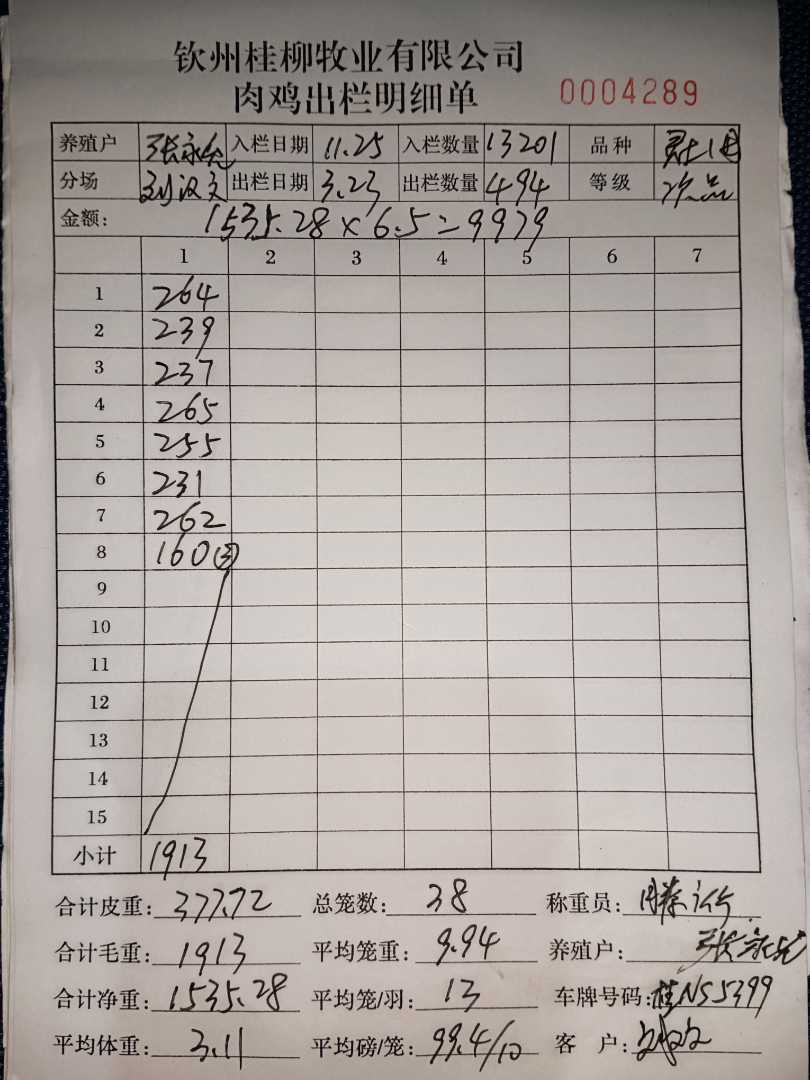 钦州桂柳牧业有限公司
肉鸡出栏明细单 0004289
养殖户 张永 入栏日期 11.25 入栏数量 13201 品种
分场 刘汉文 出栏日期 3.23 出栏数量 494 等级 次品
金额: 1535.28×6.5=9979
1 2 3 4 5 6 7
1 264
2 239
3 237
4 265
5 255
6 231
7 262
8 160(3)
9
10
11
12
13
14
15
小计 1913
合计皮重: 377.72 总笼数: 38 称重员:
合计毛重: 1913 平均笼重: 9.94 养殖户: 张永
合计净重: 1535.28 平均笼/羽: 13 车牌号码: 桂NS5399
平均体重: 3.11 平均磅/笼: 99.4/10 客 户: